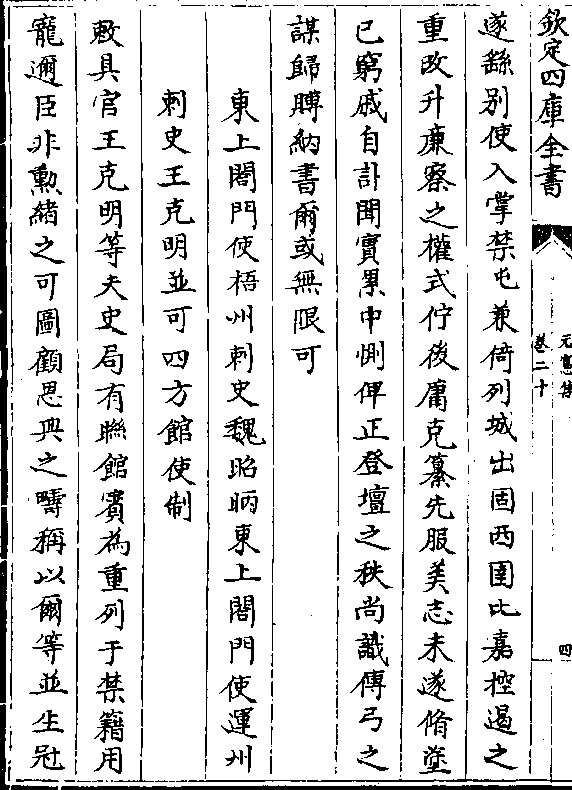 欽定四庫全書
元憲集
卷二十
四
遂繇别使入掌禁屯兼倚列城出固西圉比嘉控遏之
重改升廉察之權式佇後庸克纂先服美志未遂脩塗
已窮戚自訃聞實累中惻俾正登壇之秩尚識傳弓之
謀歸賻納書爾或無限可
東上閤門使梧州刺史魏昭昞東上閤門使運州
刺史王克明並可四方館使制
敕具官王克明等夫史局有聯館賓為重列于禁籍用
寵邇臣非勲緒之可圖顧恩典之疇稱以爾等並生冠